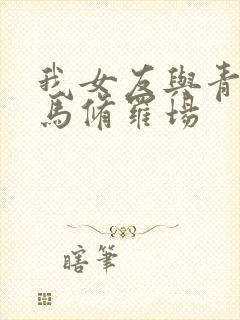 我女友與青
馬脩羅場
瞎筆